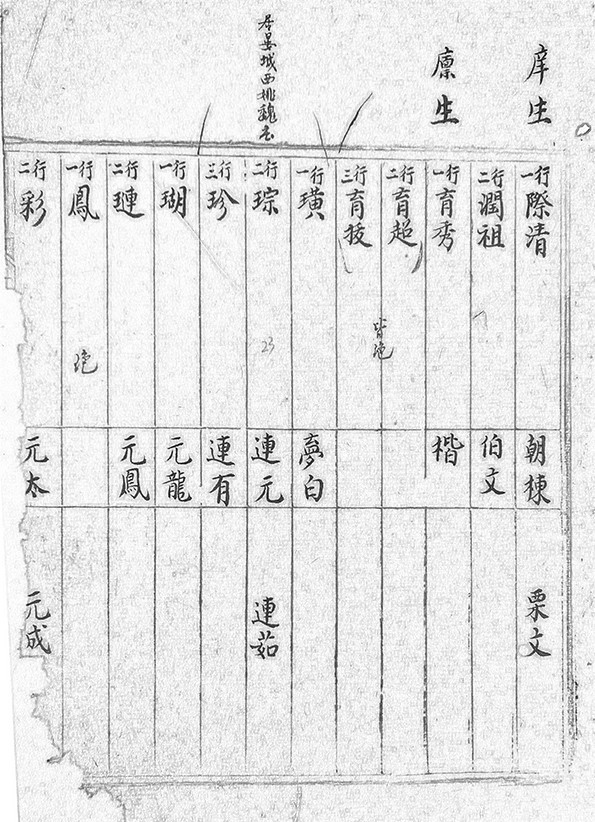 庠生
廪生
居晏城西姚魏店
行一 際清
行二 潤祖
行一 育秀
行二 育超
行三 育技
皆绝
行一 璜
行二 琮
23
行三 珍
行一 瑚
行二 璉
行一 鳳
绝
行二 彩
朝棟
伯文
楷
夢白
連元
連有
元龍
元鳳
元太
栗文
連茹
元成